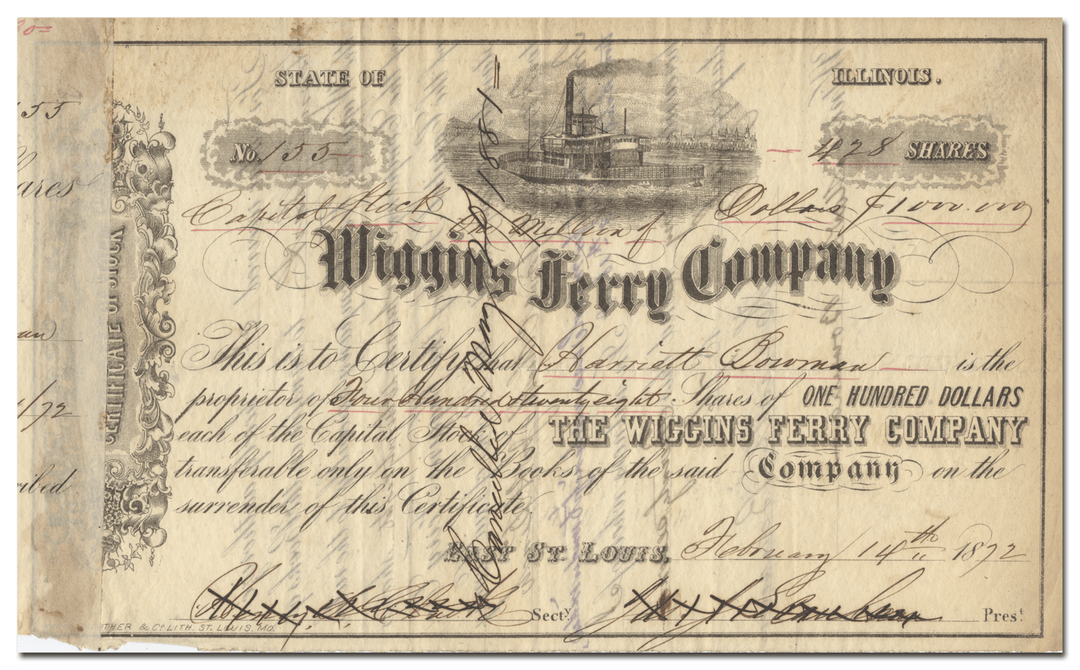 STATE OF ILLINOIS.
No. 155 428 SHARES
Capital Stock One Million of Dollars $1000.000
Wiggins Ferry Company
This is to Certify that Harriett Bowman is the
proprietor of Four Hundred & twenty eight Shares of ONE HUNDRED DOLLARS
each of the Capital Stock of THE WIGGINS FERRY COMPANY
transferable only on the Books of the said Company on the
surrender of this Certificate.
EAST ST LOUIS, February 14th 1872
Secty. Prest.
& Co. LITH. ST. LOUIS, MO.
CERTIFICATE OF STOCK
Cancelled May 1881
155
ares
an
/72
ribed